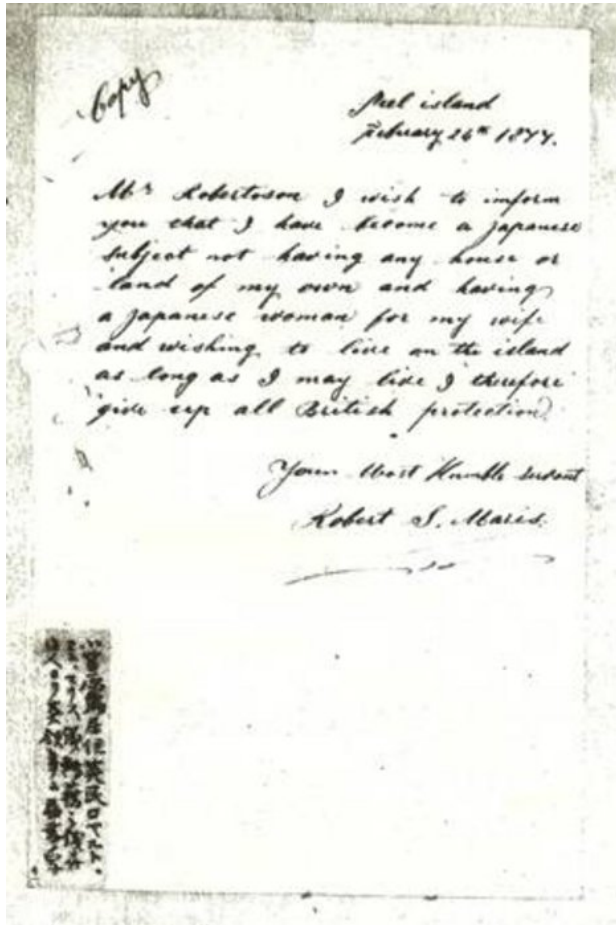 Copy
Peel island
February 26th 1877.
Mr Robertoson I wish to inform
you that I have become a japanese
subject not having any house or
land of my own and having
a japanese woman for my wife
and wishing to live on the island
as long as I may live I therefore
give up all British protection.
Your Most Humble servant
Robert S. Maris.
小笠原島居住英民ロベルト、